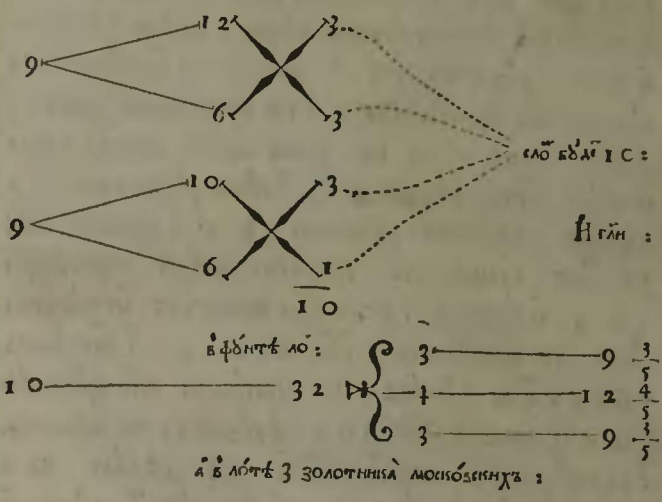 12 3
9
6 3
сло бꙋ́де 10 :
10 3
9
И гли :
6 1
10
в̾ фꙋ́нтѣ ло́ :
3 9 3/5
10 32 4 12 4/5
3 9 3/5
а҆ в̾ ло́тѣ 3 золотника̀ моско́вскихъ :